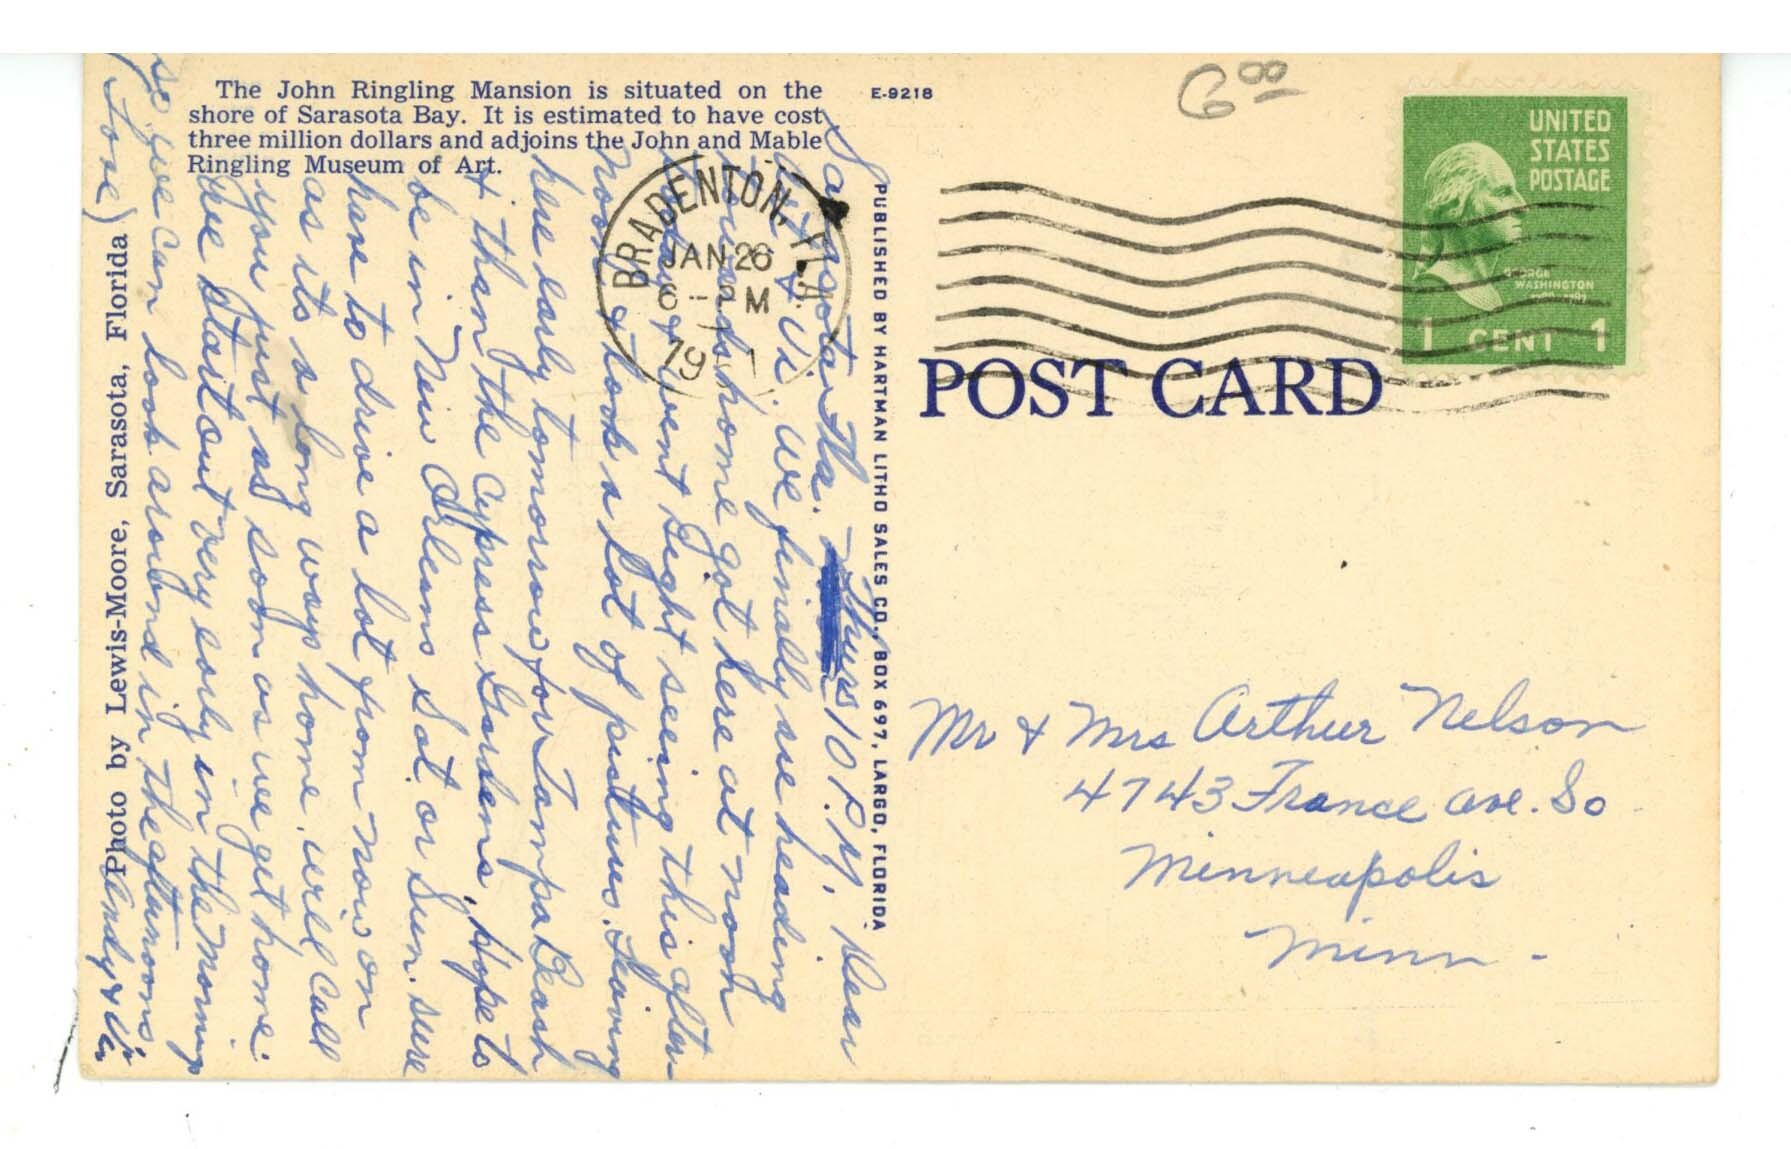 The John Ringling Mansion is situated on the
shore of Sarasota Bay. It is estimated to have cost
three million dollars and adjoins the John and Mable
Ringling Museum of Art.
E-9218
6 00
UNITED
STATES
POSTAGE
GEORGE
WASHINGTON
1 CENT 1
BRADENTON, FLA.
JAN 26
6 - PM
19 1
POST CARD
PUBLISHED BY HARTMAN LITHO SALES CO., BOX 697, LARGO, FLORIDA
Photo by Lewis-Moore, Sarasota, Florida
Sarasota Fla. Thurs 10 P.M. Dear
& Vi. We finally are heading
towards home got here at noon
today & went sight seeing this after-
noon & took a lot of pictures. Leaving
here early tomorrow for Tampa Beach
& then the Cypress Gardens, hope to
be in New Orleans Sat or Sun. sure
have to drive a lot from now on
as its a long ways home. will call
you just as soon as we get home.
We start out very early in the morning
so we can look around in the afternoons.
Love Andy & Vi
Mr & Mrs Arthur Nelson
4743 France Ave. So
Minneapolis
Minn -